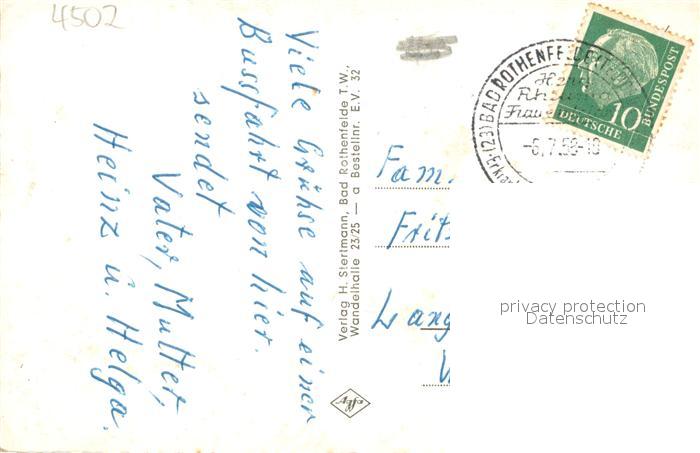 4502
Viele Grühse auf einer
Bussfahrt von hier.
sendet
Vater, Mutter,
Heinz u. Helga.
Verlag H. Stertmann, Bad Rothenfelde T.W.,
Wandelhalle 23/25 — a Bestellnr. E.V. 32
Agfa
(23) BAD ROTHENFELDE
Herz
Rheuma
Frauen
-6.7.58-18
10
DEUTSCHE
BUNDESPOST
Fam.
Frit
Lang
privacy protection
Datenschutz